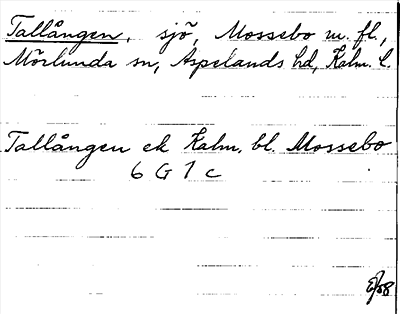 Tallången, sjö, Mossebo m. fl.,
Mörlunda sn, Aspelands hd, Kalm. l.
Tallången ek Kalm. bl. Mossebo
6 G 1 c